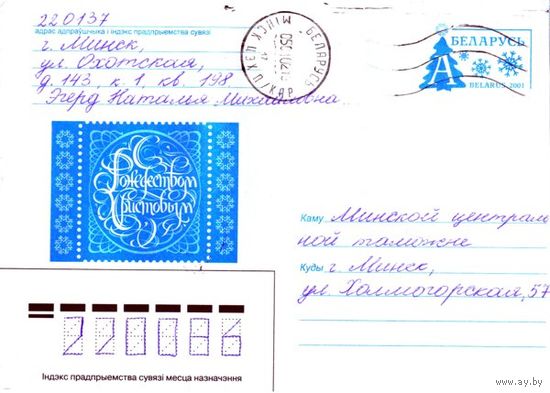 220137
адрас адпраўшчыка і індэкс прадпрыемства сувязі
г. Минск,
ул. Охотская,
д. 143, к. 1, кв. 198
Эгерд Наталья Михайловна
МІНСК ПЖД
БЕЛАРУСЬ
КАР
БЕЛАРУСЬ
А
BELARUS 2001
С
Рождеством
Христовым
Каму Минской централь
ной таможне
Куды г. Минск,
ул. Холмогорская, 57
220086
Індэкс прадпрыемства сувязі месца назначэння
www.ay.by